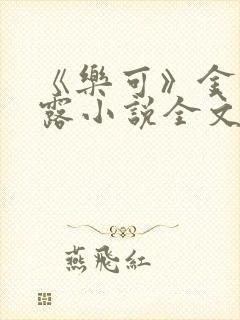 《樂可》全
露小說全文
燕飛紅